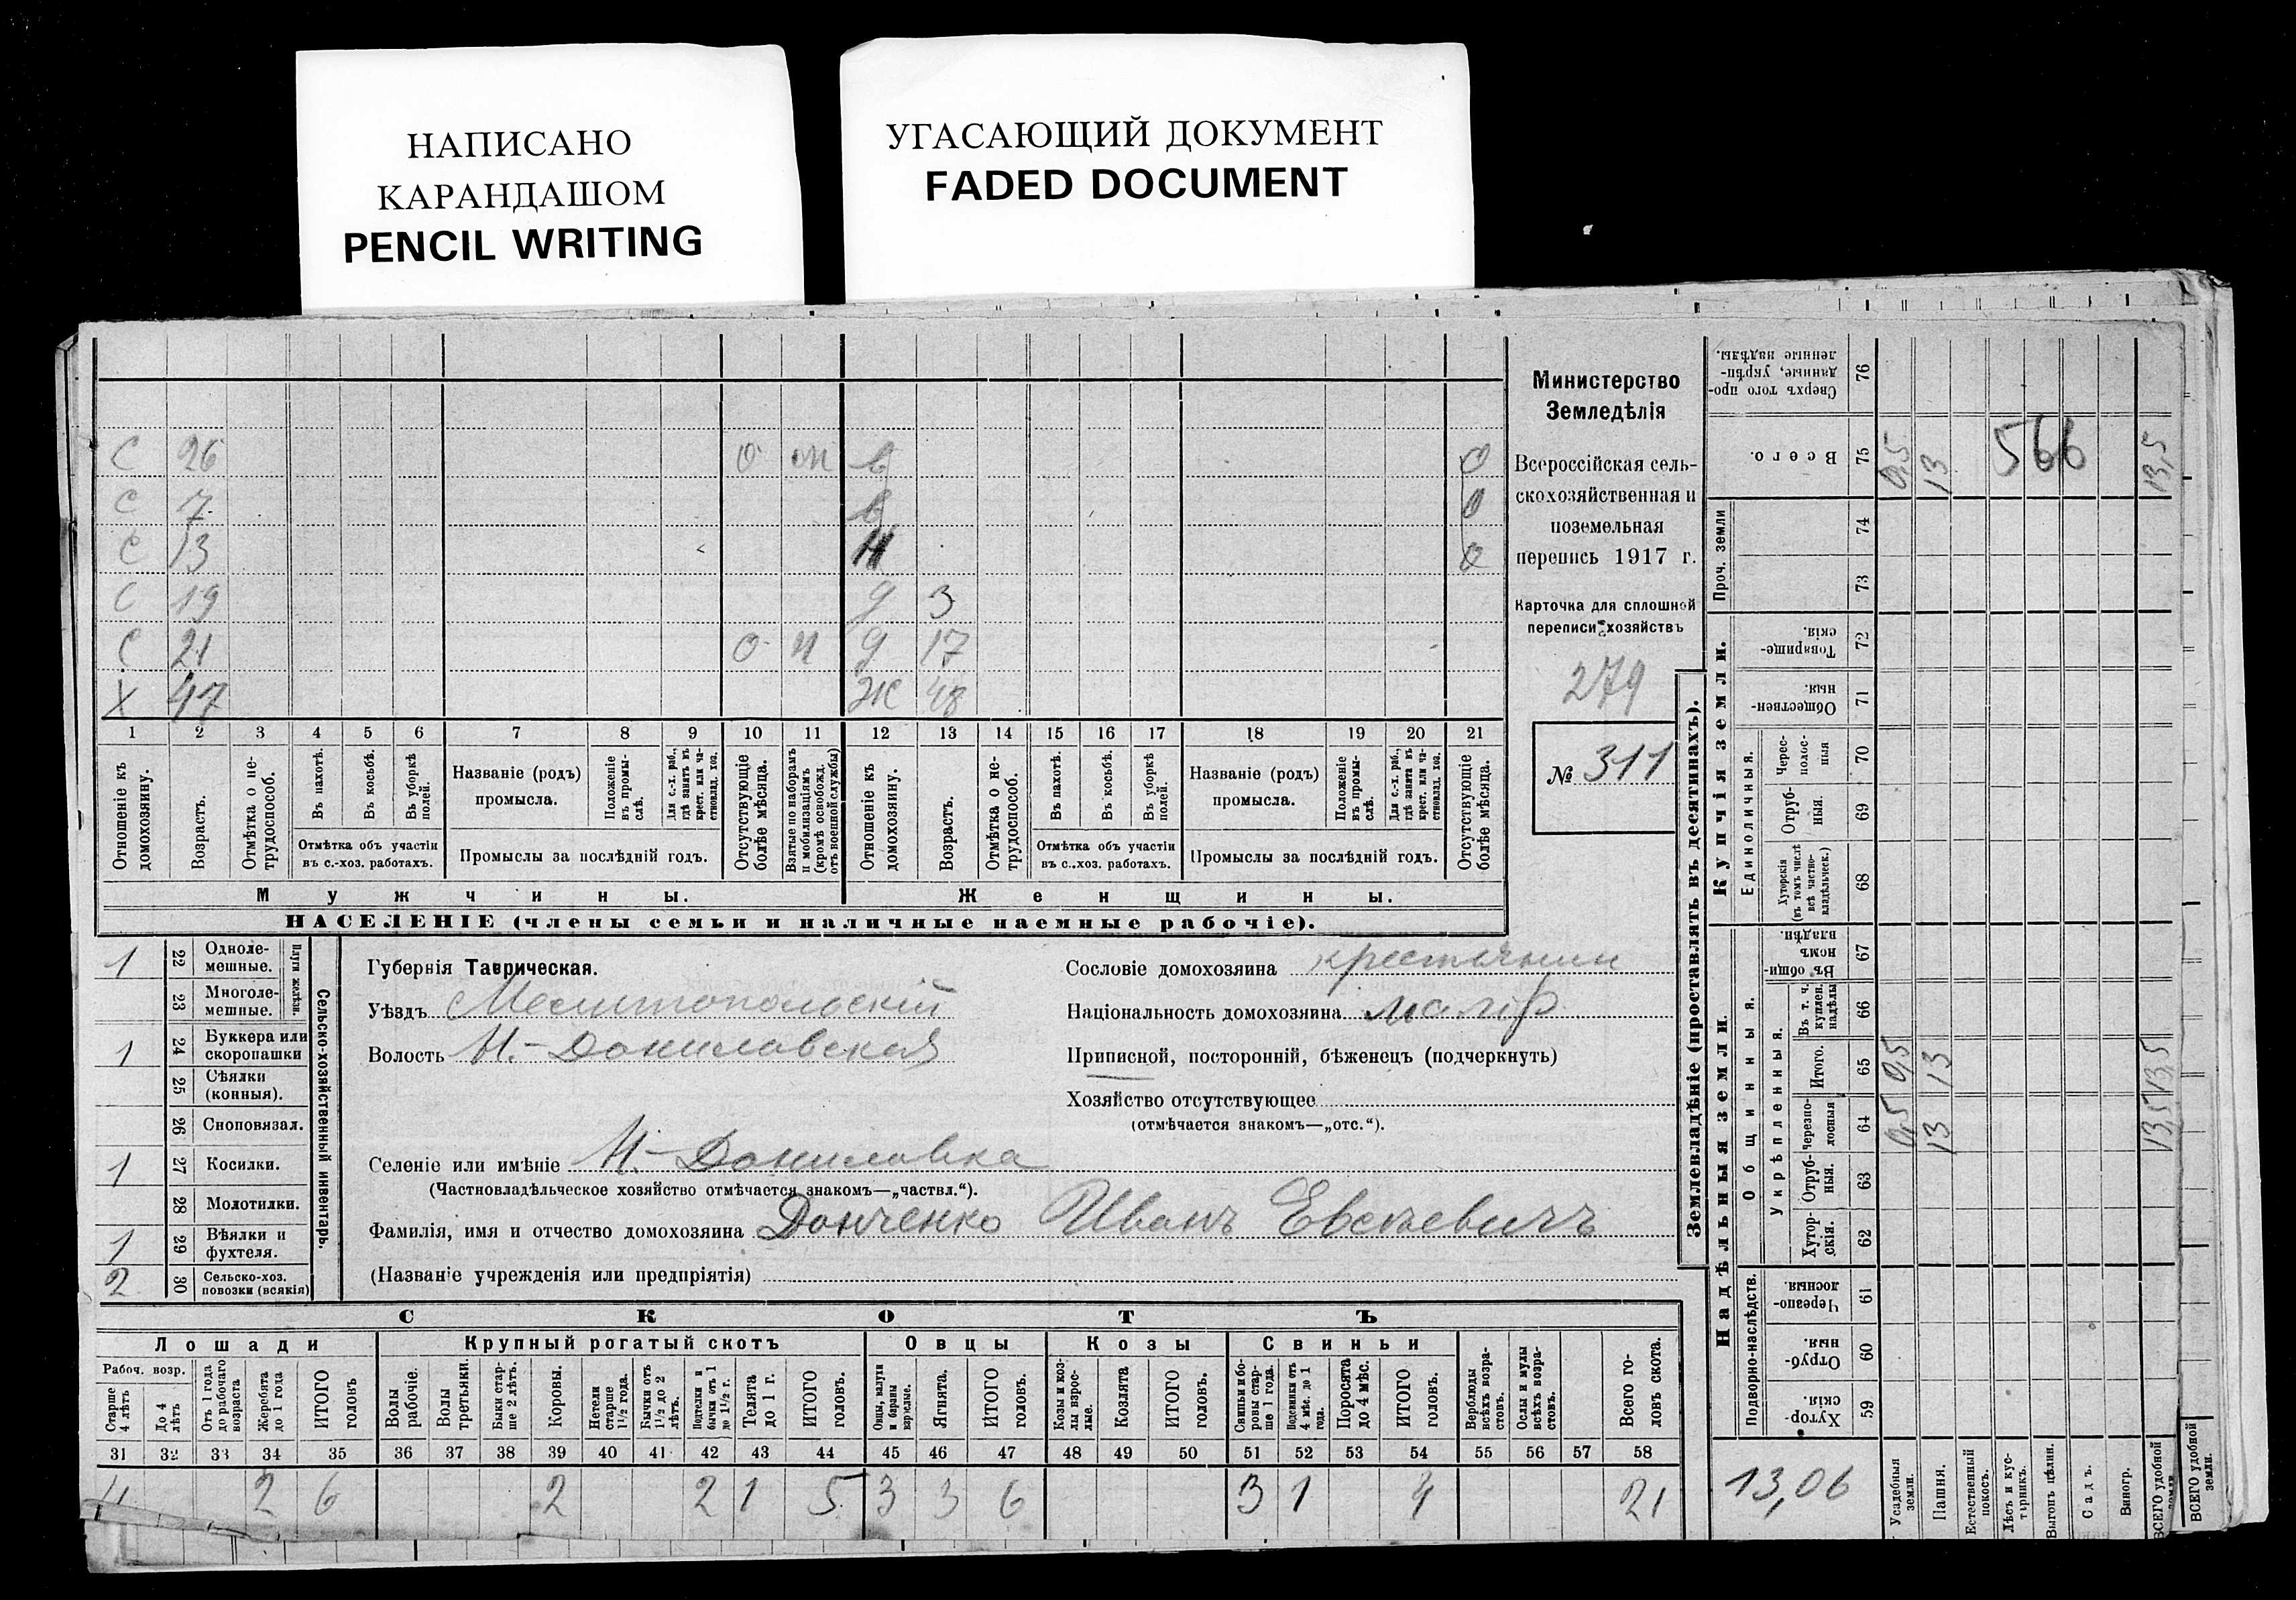 НАПИСАНО
КАРАНДАШОМ
PENCIL WRITING
УГАСАЮЩИЙ ДОКУМЕНТ
FADED DOCUMENT
С 26 О М
С 7
С 13 О
С 19 д 3
С 21 О д 17
Х 47 Ж 48
1 2 3 4 5 6 7 8 9 10 11 12 13 14 15 16 17 18 19 20 21
Отношеніе къ домохозяину.
Возрастъ.
Отмѣтка о не-трудоспособ.
Въ пахотѣ.
Въ косьбѣ.
Въ уборкѣ полей.
Отмѣтка объ участіи въ с.-хоз. работахъ.
Названіе (родъ) промысла.
Положеніе въ промы-слѣ.
Для с.-х. раб., гдѣ занятъ въ крест. или ча-стновлад. хоз.
Промыслы за послѣдній годъ.
Отсутствующіе болѣе мѣсяца.
Взятые по наборамъ и мобилизаціямъ (кромѣ освобожд. отъ военной службы)
Отношеніе къ домохозяину.
Возрастъ.
Отмѣтка о не-трудоспособ.
Въ пахотѣ.
Въ косьбѣ.
Въ уборкѣ полей.
Отмѣтка объ участіи въ с.-хоз. работахъ.
Названіе (родъ) промысла.
Положеніе въ промы-слѣ.
Для с.-х. раб., гдѣ занята въ крест. или ча-стновлад. хоз.
Промыслы за послѣдній годъ.
Отсутствующіе болѣе мѣсяца.
Мужчины.
Женщины.
НАСЕЛЕНІЕ (члены семьи и наличные наемные рабочіе).
Министерство
Земледѣлія
Всероссійская сель-
скохозяйственная и
поземельная
перепись 1917 г.
Карточка для сплошной
переписи хозяйствъ
279
№ 311
1 22 Одноле-мешные.
Плуги желѣзн.
23 Многоле-мешные.
1 24 Буккера или скоропашки
25 Сѣялки (конныя).
26 Сноповязал.
1 27 Косилки.
28 Молотилки.
1 29 Вѣялки и фухтеля.
2 30 Сельско-хоз. повозки (всякія)
Сельско-хозяйственный инвентарь.
Губернія Таврическая.
Уѣздъ Мелитопольскій
Волость Н.-Даниловская
Сословіе домохозяина крестьянин
Національность домохозяина малор.
Приписной, посторонній, бѣженецъ (подчеркнуть)
Хозяйство отсутствующее
(отмѣчается знакомъ—„отс.“).
Селеніе или имѣніе Н.-Даниловка
(Частновладѣльческое хозяйство отмѣчается знакомъ—„частвл.“).
Фамилія, имя и отчество домохозяина Донченко Иванъ Евсѣевичъ
(Названіе учрежденія или предпріятія)
СКОТЪ
Лошади
Крупный рогатый скотъ
Овцы
Козы
Свиньи
Рабоч. возр.
Старше 4 лѣтъ
До 4 лѣтъ
Отъ 1 года до рабочаго возраста
Жеребята до 1 года
ИТОГО головъ
Волы рабочіе.
Волы третьяки.
Быки стар-ше 2 лѣтъ.
Коровы.
Нетели старше 1½ года.
Бычки отъ 1½ до 2 лѣтъ.
Подтелки и бычки отъ 1 до 1½ г.
Телята до 1 г.
ИТОГО головъ.
Овцы, валухи и бараны взрослые.
Ягнята.
ИТОГО головъ.
Козы и коз-лы взрос-лые.
Козлята
ИТОГО головъ.
Свиньи и бо-ровы стар-ше 1 года.
Подсвинки отъ 4 мѣс. до 1 года.
Поросята до 4 мѣс.
ИТОГО головъ.
Верблюды всѣхъ возра-стовъ.
Ослы и мулы всѣхъ возра-стовъ.
Всего го-ловъ скота.
31 32 33 34 35 36 37 38 39 40 41 42 43 44 45 46 47 48 49 50 51 52 53 54 55 56 57 58
4 2 6 2 2 1 5 3 3 6 3 1 4 21
Землевладѣніе (проставлять въ десятинахъ).
Надѣльныя земли.
Купчія земли.
Подворно-наслѣдств.
Общинныя.
Укрѣпленныя.
Единоличныя.
Проч. земли
Хутор-скія. 59
Отруб-ныя. 60
Черезпо-лосныя. 61
Хутор-скія. 62
Отруб-ныя. 63
Черезпо-лосныя 64
Итого. 65
Въ т. ч. куплен. надѣлы 66
Въ общин-номъ владѣн. 67
Хуторскія (въ томъ числѣ всѣ частно-владѣльческ.) 68
Отруб-ныя. 69
Черес-полос-ныя 70
Обществен-ныя. 71
Товарище-скія. 72
73
74
Всего. 75
Сверхъ того про-данные, укрѣп-ленные надѣлы. 76
0,5 0,5 0,5
13 13 13
566
13,5 13,5 13,5
13,06
Усадебныя земли.
Пашня.
Естественный покосъ.
Лѣсъ и кус-тарникъ.
Выгонъ цѣлин.
Садъ.
Виногр.
ВСЕГО удобной земли
ВСЕГО удобной земли.